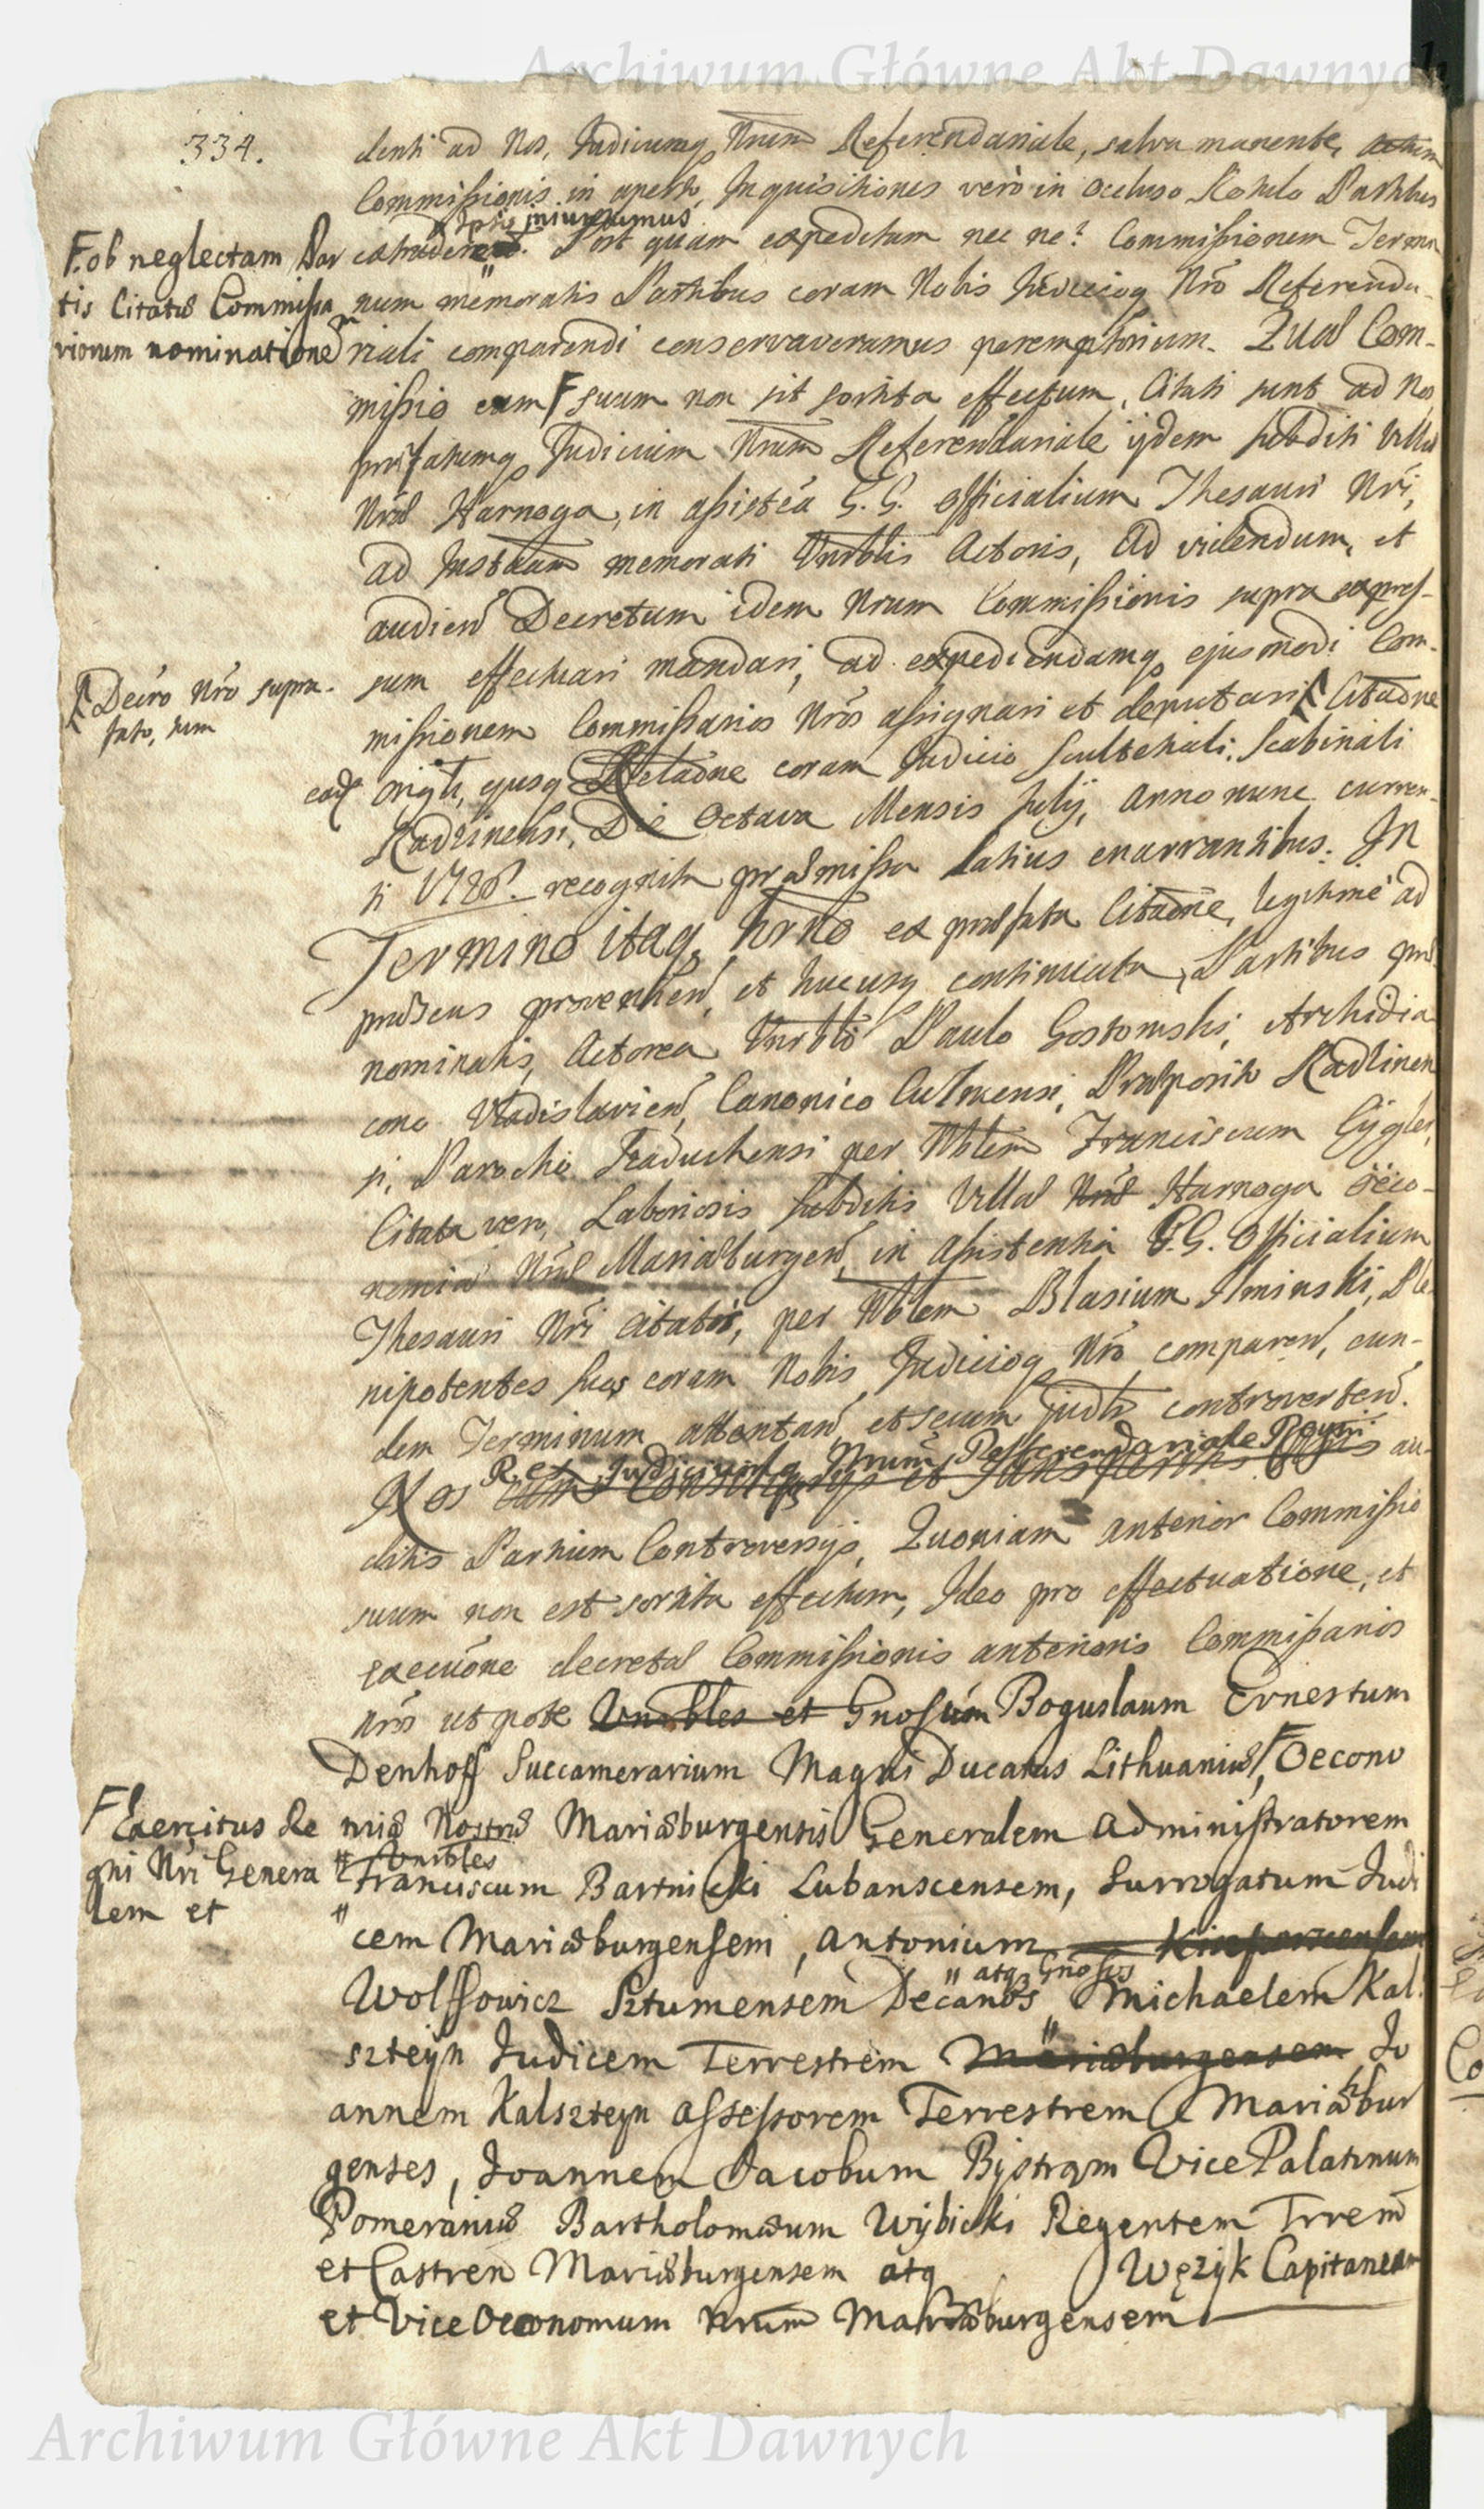 Archiwum Główne Akt Dawnych
334.
denti ad Nos, Judiciumq Nrum Referendariale, salva manente, Actum
Commissionis in aperto, Inquisitiones verò in occluso Rotulo Partibus
iniunximus
extradere. Post quam expeditam nec ne? Commissionem Termi
F. ob neglectam Par
tis Citatæ Commissa
riorum nominationem
num memoratis Partibus coram Nobis Judicioq Nrō Referenda-
riali comparendi conservaveramus peremptorium. Quæ Com-
missio cum F suum non sit sortita effectum, Citati sunt ad Nos
præfatumq Judicium Nrum Referendariale ijdem subditi Villæ
Nræ Harnoga, in assisteã G. G. Officialium Thesauri Nri,
ad Instaam memorati Vnrblis Actoris, Ad videndum, et
audien Decretum idem Nrum Commissionis supra expres-
sum effectuari mandari, ad expediendamq ejusmodi Com-
Decrō Nrō supra-
fato, tum
missionem Commissarios Nrōs assignari et deputari Citaōne
eaď origli, ejusq Relaōne coram Judicio Scultetiali, Scabinali
Radzinensi, Die Octava Mensis Julij, Anno nunc curren-
ti 1728. recognita præmissa latius enarrantibus. In
Termino itaq hrno ex præfata Citaōne, legitimè ad
præsens provenien, et hucusq continuata, Partibus præ
nominatis, Actorea Vnrbli Paulo Gostomski, Archidia
cono Vladislavien, Canonico Culmensi, Præposito Radzinen
si, Parocho Fraduchensi per Nblem Franciscum Cygler,
Citata vero, Laboriosis subditis Villæ Nræ Harnoga Oeco-
nomiæ Nræ Mariæburgen, in Assistentia G. G. Officialium
Thesauri Nri citatis, per Nblem Blasium Ilminski, Ple
nipotentes suos coram Nobis Judicioq Nrō comparen, eun-
dem Terminum attentan, et secum judtr controverten.
Ret Judiciumq Nrum Referendariale Regni
Nos cum Consiliarijs et Juris peritis au-
ditis Partium Controversijs, Quoniam anterior Commissio
suum non est sortita effectum, Ideo pro effectuatione, et
execuōne decretæ Commissionis anterioris Commissarios
Nrōs utpote Vnrbles et Gnosum Boguslaum Ernestum
Denhoff Succamerarium Magni Ducatus Lithuaniæ, F Oecono
F Exercitus Re
gni Nri Genera
lem et
miæ Nostræ Mariæburgensis Generalem Administratorem
Vnrbles
Franciscum Bartnicki Lubanscensem, Surrogatum Judi
cem Mariæburgensem, Antonium
Wolssowicz Sztumensem Decanos atq Gnosos Michaelem Kal
szteyn Judicem Terrestrem Mariæburgensem Jo
annem Kalszteyn Assessorem Terrestrem Mariæbur
genses, Joannem Jacobum Bystram Vice Palatinum
Pomeraniæ Bartholomæum Wybicki Regentem Trrem
et Castren Mariæburgensem atq Węzyk Capitaneum
et Vice Oeconomum Nrum Mariæburgensem
Archiwum Główne Akt Dawnych